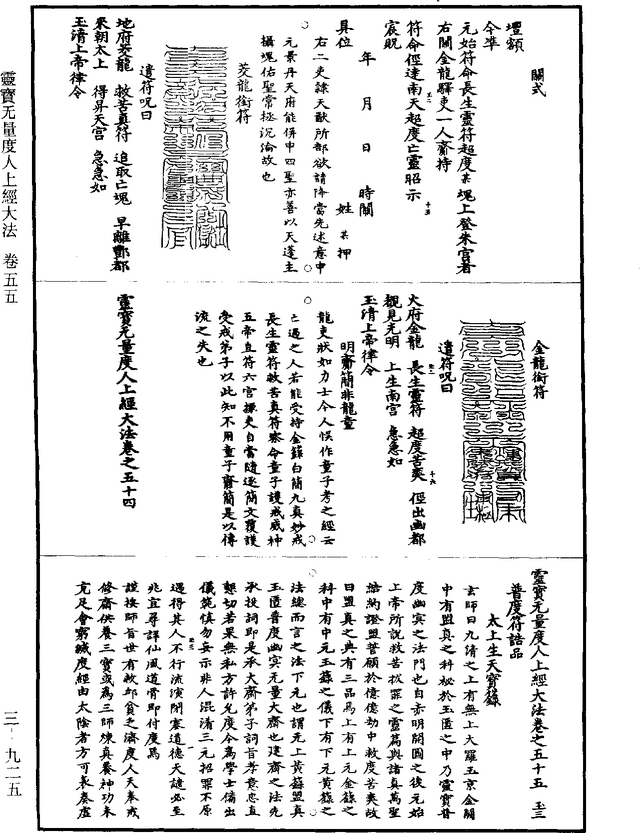 壇額
關式
今準
元始符命長生靈符超度某魂上登朱宮者
右關金龍驛吏一人齎持
符命徑達南天超度亡靈昭示
宸貺
年 月 日 時關
具位 姓 某 押
右二吏隸天猷所部欲請降當先述意申
元景丹天府能併申四聖亦善以天蓬主
攝魂佑聖常拯沉淪故也
茭龍銜符
遣符呪曰
地府茭龍 救苦真符 追取亡魂 早離酆都
來朝太上 得昇天宮 急急如
玉清上帝律令
金龍銜符
遣符呪曰
火府金龍 長生靈符 超度苦爽 徑出幽都
覩見光明 上生南宮 急急如
玉清上帝律令
明齋簡非龍童
龍吏狀如力士今人悞作童子考之經云
亡過之人若能受持金籙白簡九真妙戒
長生靈符救苦真符察命童子護戒威神
五帝直符六宮掾吏自當隨逐簡文覆護
受戒弟子以此知不用童子齎簡是以傳
流之失也
靈寶无量度人上經大法卷之五十四
靈寶无量度人上經大法卷之五十五 玉三
普度符誥品
太上生天寶籙
玄師曰九清之上有無上大羅玉京金闕
中有盟真之科秘於玉匱之中乃靈寶普
度幽冥之法門也自赤明開圖之後元始
上帝所說救苦拔罪之靈篇與諸真萬聖
結約證盟誓願於億億劫中救度苦爽故
曰盟真之典有三品焉上有上元金籙之
科中有中元玉籙之儀下有下元黃籙之
法總而言之法下元也謂元上黃籙盟真
玉匱普度幽冥无量大齋也建齋之法先
承投詞即是承大齋弟子詞旨孝意忠直
懇切若果無私方許允度今爲學士備出
儀範慎勿妄示非人混清三元招罪不原
遇得其人不行流演閉塞道德天譴必至
兆宜尋詳仙風道骨即付度焉
謹按師旨世有救卹貧乏濟度人天奉戒
修齋供養三寶或爲三師煉真養神功未
充足會窮緘度經由太陰者方可表奏虛
靈寶无量度人上經大法 卷五五
三—九二五